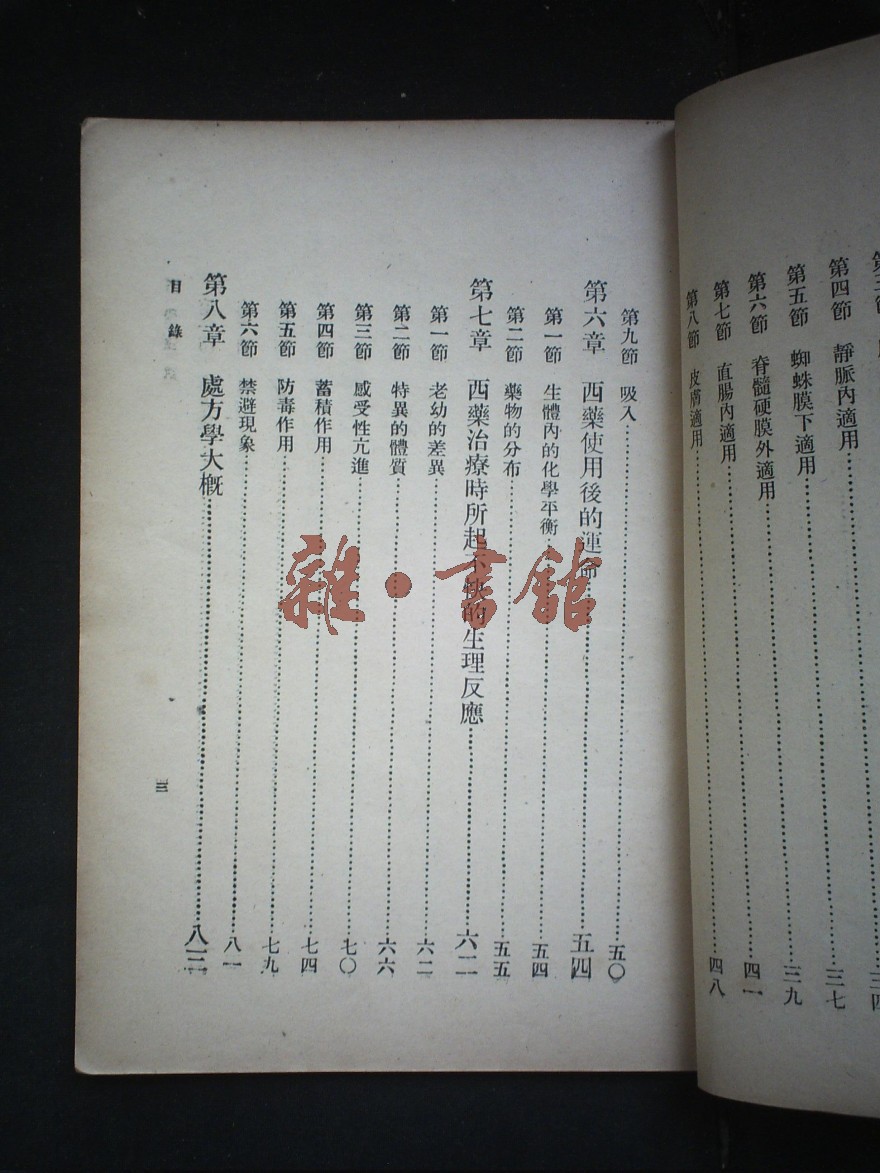 第四節 靜脈內適用 三七
第五節 蜘蛛膜下適用 三九
第六節 脊髓硬膜外適用 四一
第七節 直腸內適用
第八節 皮膚適用 四八
第九節 吸入 五〇
第六章 西藥使用後的運命 五四
第一節 生體內的化學平衡 五四
第二節 藥物的分布 五五
第七章 西藥治療時所起不快的生理反應 六二
第一節 老幼的差異 六二
第二節 特異的體質 六六
第三節 感受性亢進 七〇
第四節 蓄積作用 七四
第五節 防毒作用 七九
第六節 禁避現象 八一
第八章 處方學大概 八三
目錄
三
雜·書館